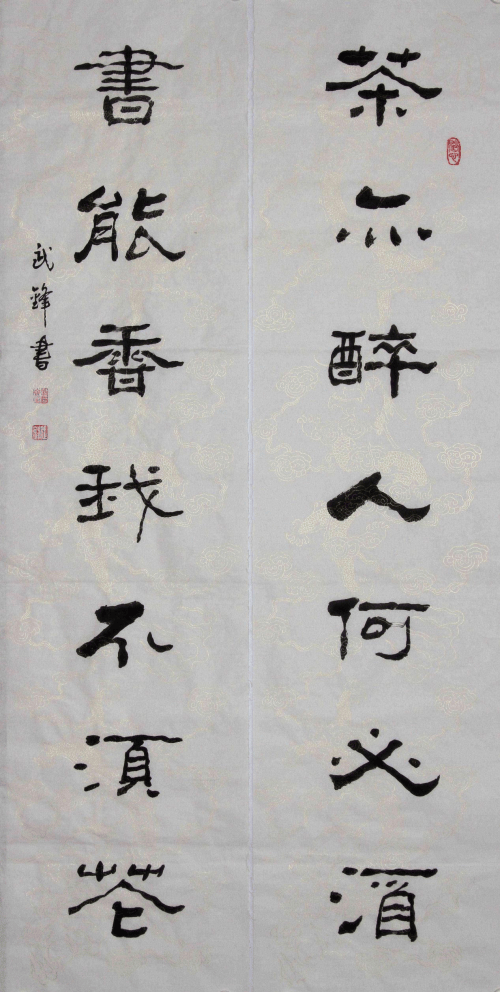 茶亦醉人何必酒
書能香我不湏花
武鋒書